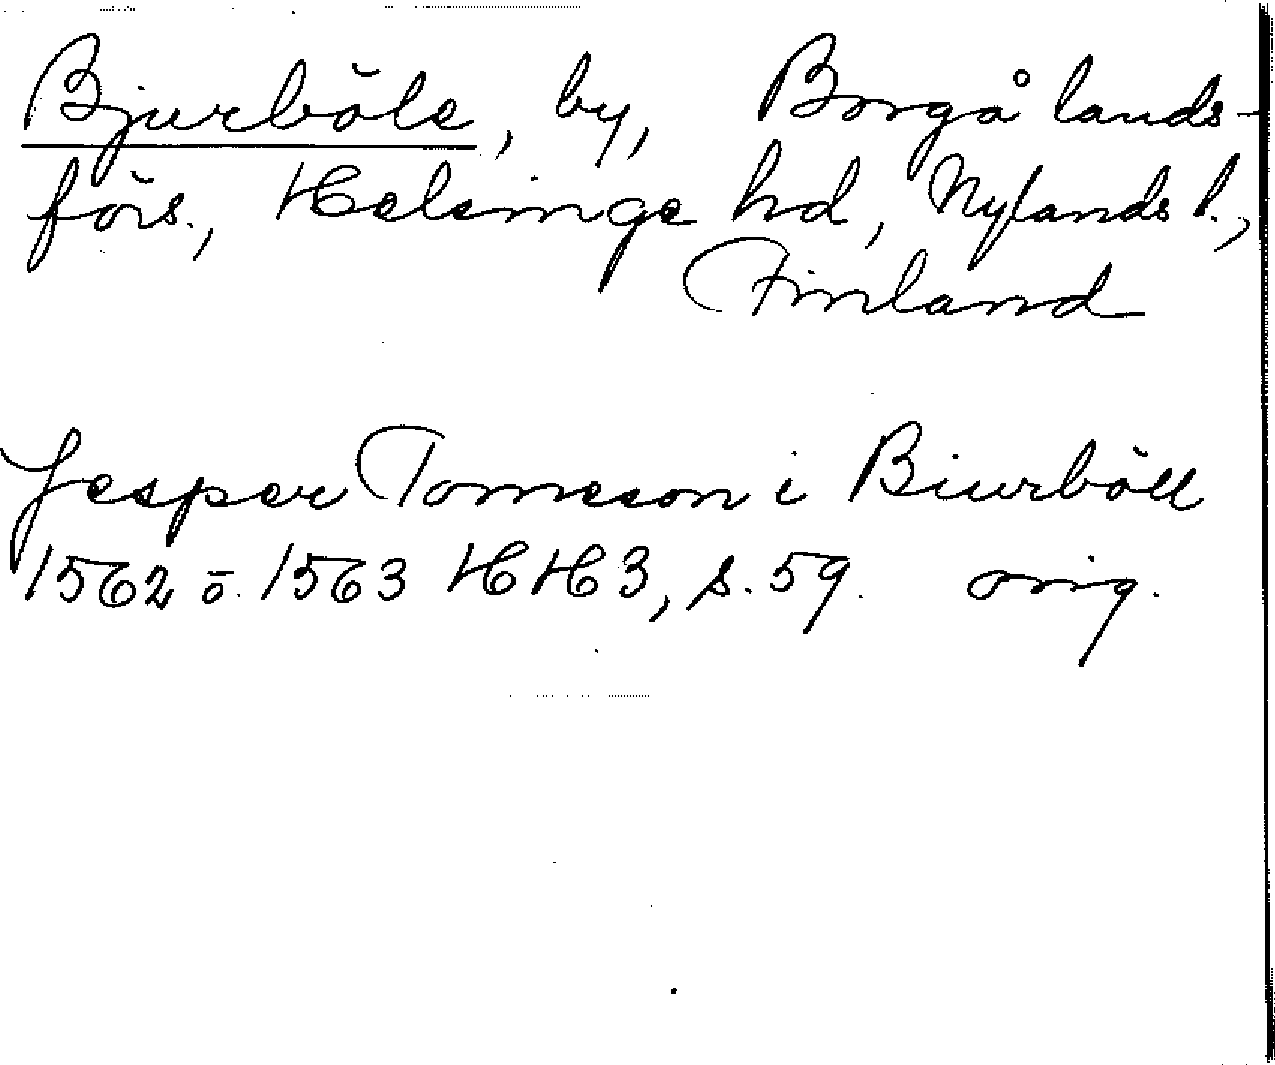 Bjurböle, by, Borgå lands-
förs., Helsinge hd, Nylands l.,
Finland
Jesper Tomeson i Biurböll
1562 ö. 1563 HH3, s. 59. orig.